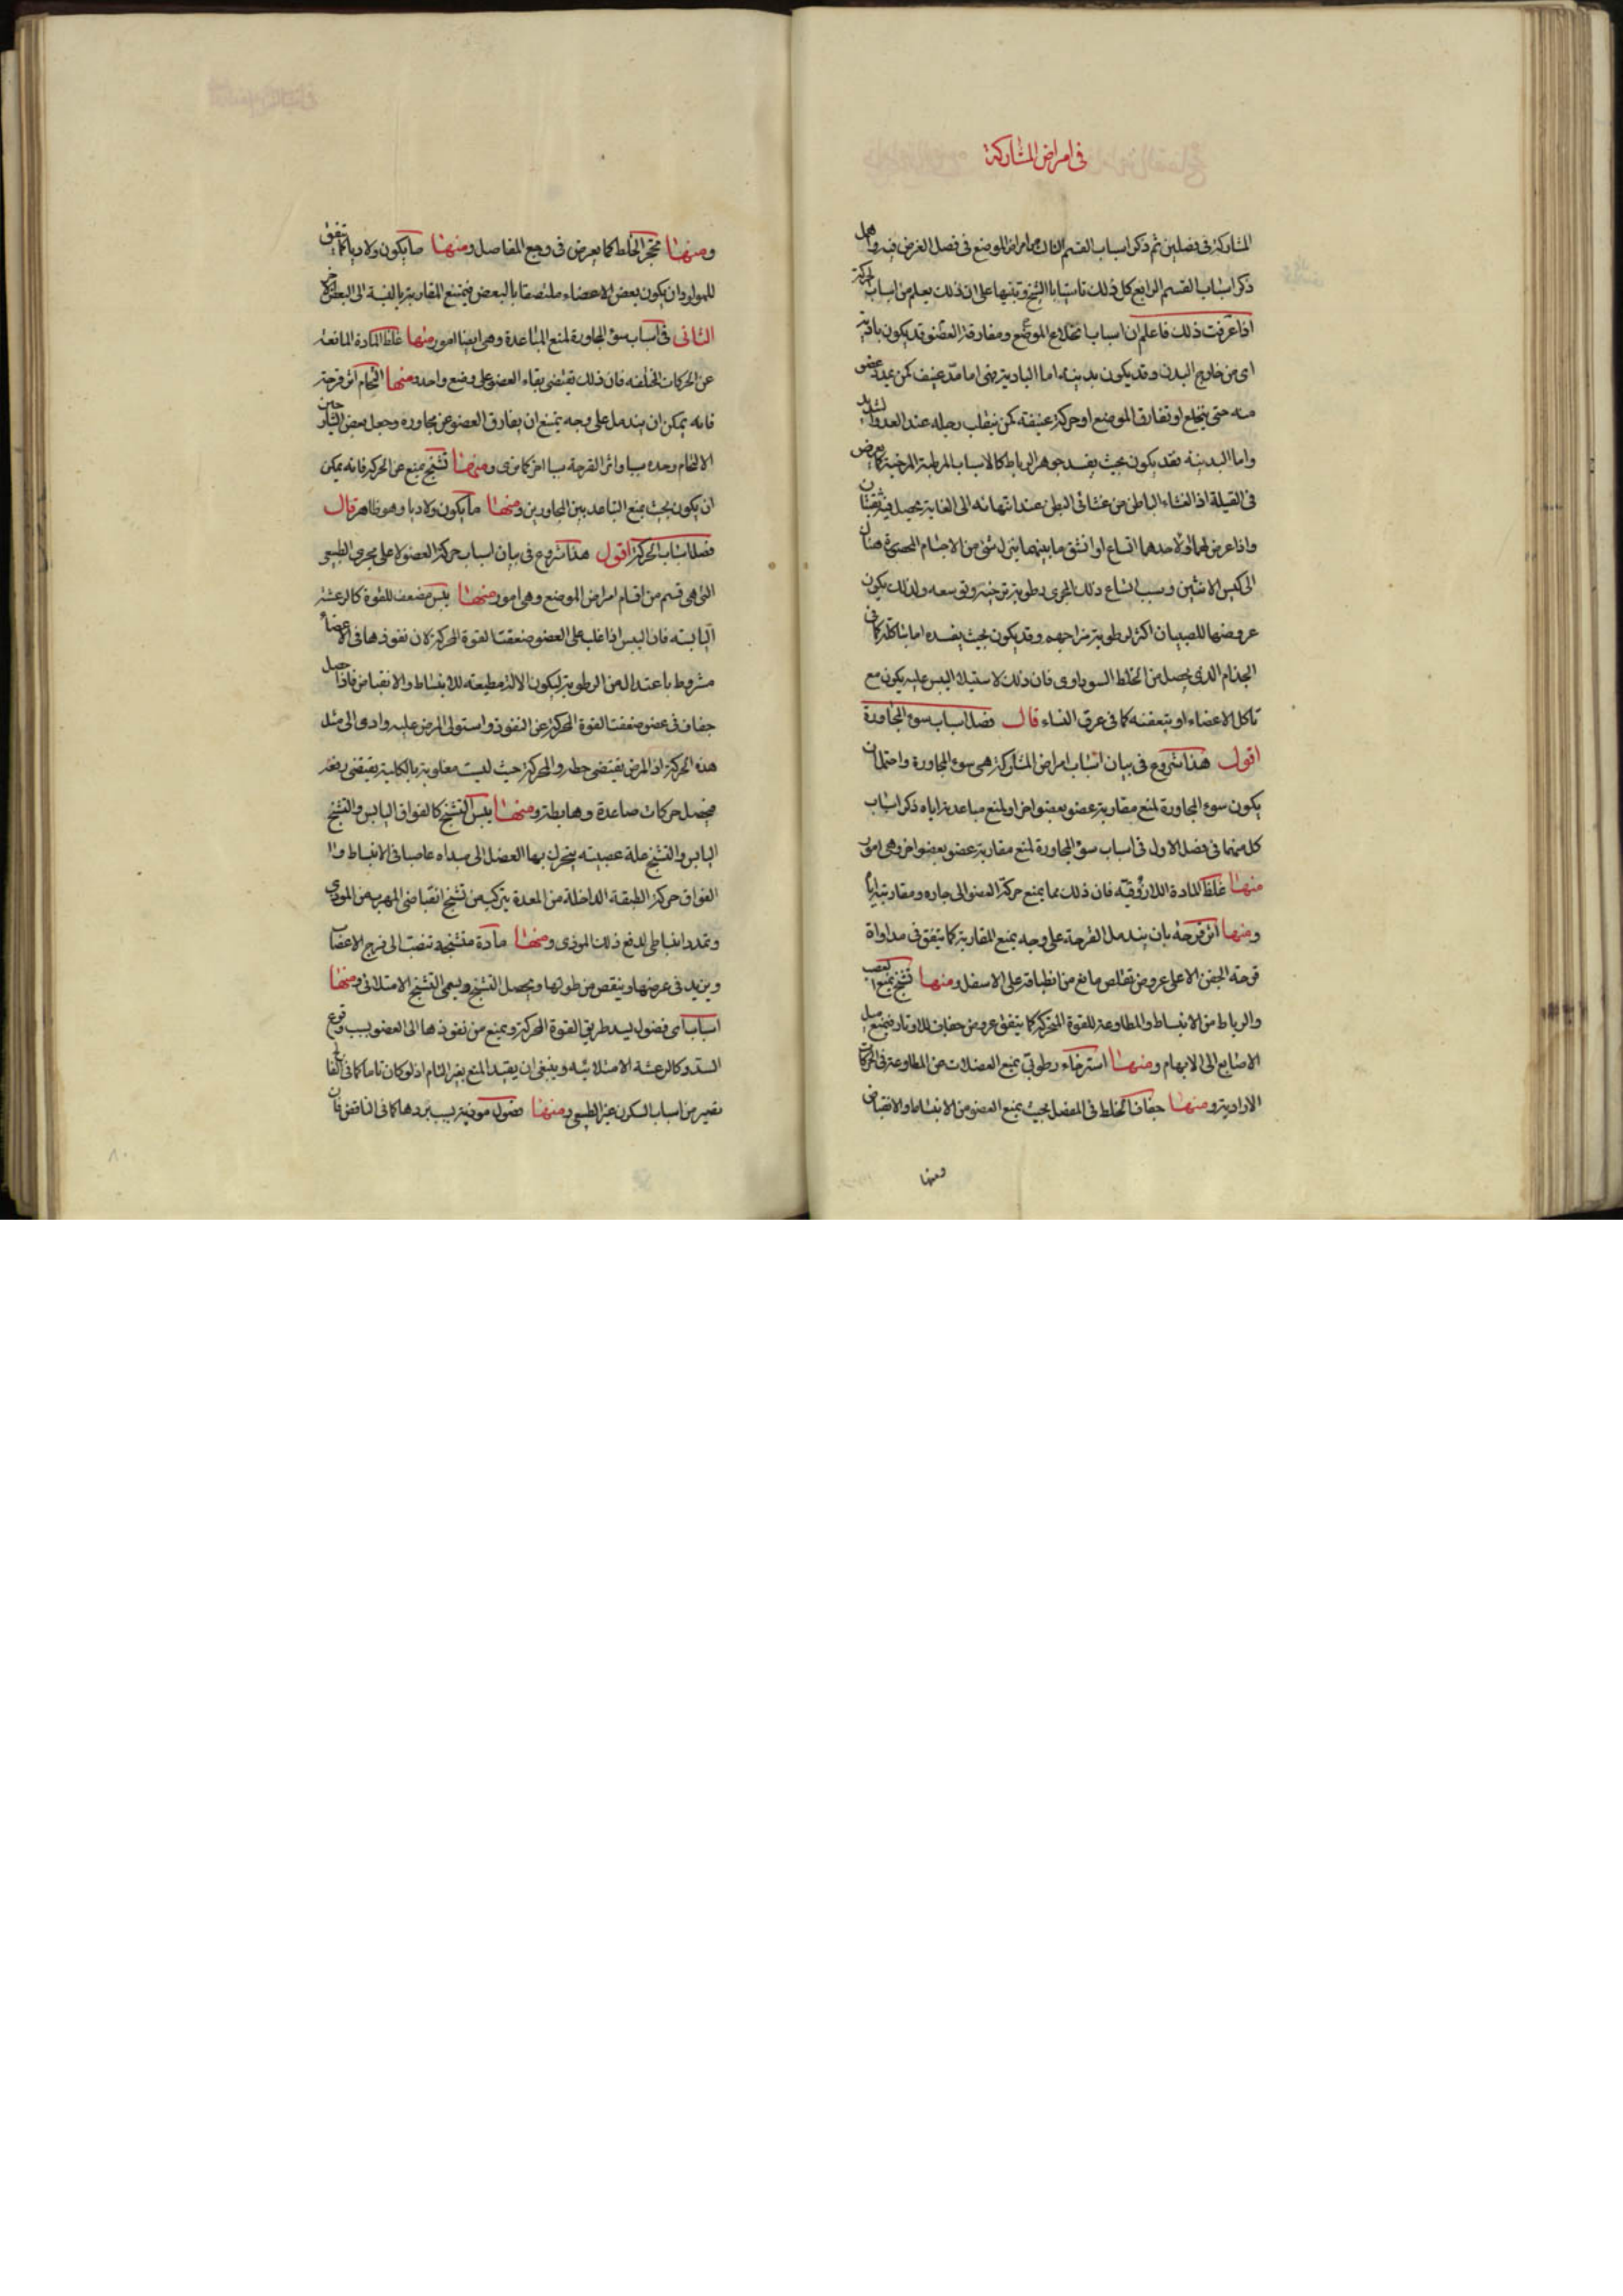 فى امراض المشاركة
المشاركة فى فصلين ثم ذكر اسباب القسم الثالث من امراض الموضع فى فصل الغرض فيه واهمل
ذكر اسباب القسم الرابع كل ذلك تاسيا بالشيخ وتنبيها على ان ذلك يعلم من اسباب الحركة
اذا عرفت ذلك فاعلم ان اسباب انخلاع الموضع ومفارقة العضو قد يكون بادية
اى من خارج البدن وقد يكون بدنية اما البادية فهى اما مدّ عنيف كمن يمدد عضو
منه حتى ينخلع او تفارق الموضع او حركة عنيفة كمن ينقلب رجله عند العدو الشديد
واما البدنية فقد يكون بحيث يفسد جوهر الرباط كالاسباب المرطبة المرخية كما يعرض
فى القيلة اذ الغشاء الباطن من غشائى البطن عند انتهائه الى الغاية يحصل فيه ثقبتان
واذا عرض لهما او لاحدهما اتساع او انشق ما بينهما ينزل شئ من الاجسام المحصورة هناك
الى كيس الانثيين وسبب اتساع ذلك المجرى رطوبة ترخيه وتوسعه ولذلك يكون
عروضها للصبيان اكثر لرطوبة مزاجهم وقد يكون بحيث يفسده اما بتاكله كما فى
الجذام الذى يحصل من الخلط السوداوى فان ذلك لاستيلاء اليبس عليه يكون مع
تاكل الاعضاء او بتعفنه كما فى عرق النساء قال فصل اسباب سوء المجاورة
اقول هذا شروع فى بيان اسباب امراض المشاركة هى سوء المجاورة واحتملان
يكون سوء المجاورة لمنع مقاربة عضو بعضو اخر او لمنع مباعدته اياه ذكر اسباب
كل منهما فى فصل الاول فى اسباب سوء المجاورة لمنع مقاربة عضو بعضو اخر وهى امور
منها غلظ المادة اللازوقية فان ذلك مما يمنع حركة العضو الى جاره ومقاربته اياه
ومنها اثر قرحة بان يندمل القرحة على وجه يمنع المقاربة كما يتفق فى مداواة
قرحة الجفن الاعلى عروض تقلص مانع من انطباقه على الاسفل ومنها تشنج يمنع العصب
والرباط من الانبساط والمطاوعة للقوة المحركة كما يتفق عروض جفاف للاوتار فيمنع ميل
الاصابع الى الابهام ومنها استرخاء رطوبى يمنع العضلات عن المطاوعة فى الحركات
الارادية ومنها جفاف الخلط فى المفصل بحيث يمنع العضو من الانبساط والانقباض
ومنها
ومنها تحجر الخلط كما يعرض فى وجع المفاصل ومنها ما يكون ولاديا كما يتفق
للمولود ان يكون بعض الاعضاء ملتصقا بالبعض فيمتنع المقاربة بالنسبة الى البعض الاخر
الثانى فى اسباب سوء المجاورة لمنع المباعدة وهى ايضا امور منها غلظ المادة المانعة
عن الحركات المختلفه فان ذلك يقتضى بقاء العضو على وضع واحد ومنها التحام اثر قرحة
فانه يمكن ان يندمل على وجه يمنع ان يفارق العضو عن مجاوره وجعل بعض الشارحين
الالتحام وحده سببا واثر القرحة سببا اخر كما ترى ومنها تشنج يمنع عن الحركة فانه يمكن
ان يكون بحيث يمنع التباعد بين المجاورين ومنها ما يكون ولاديا وهو ظاهر قال
فصل اسباب الحركة اقول هذا شروع فى بيان اسباب حركة العضو لا على مجرى الطبيعى
التى هى قسم من اقسام امراض الموضع وهى امور منها يبس مضعف للقوة كالرعشة
اليابسة فان اليبس اذا غلب على العضو ضعفت القوة المحركة لان نفوذها فى الاعضاء
مشروط باعتدالها من الرطوبة ليكون الالة مطيعة للانبساط والانقباض فاذا حصل
جفاف فى عضو ضعفت القوة المحركة عن النفوذ واستولى المرض عليه وادى الى مثل
هذه الحركة اذ المرض يقتضى حطه والمحركة حيث ليست مغلوبة بالكلية يقتضى رفعه
فيحصل حركات صاعدة وهابطة ومنها يبس التشنج كالفواق اليابس والتشنج
اليابس والتشنج علة عصبية يتحرك بها العضل الى مبداه عاصيا فى الانبساط و
الفواق حركة الطبقة الداخلة من المعدة يتركب من تشنج انقباضى للهرب من الموذى
وتمدد انبساطى لدفع ذلك الموذى ومنها مادة متشنجة تنصب الى فرج الاعصاب
ويزيد فى عرضها وينقص من طولها ويحصل التشنج ويسمى التشنج الامتلائى ومنها
اسباب اى فضول يسد طريق القوة المحركة ويمنع من نفوذها الى العضو بسبب وقوع
السدة كالرعشة الامتلائية وينبغى ان يقيد المنع بغير التام اذ لو كان تاما كما فى الفالج
يصير من اسباب السكون غير الطبيعى ومنها فضول موذية بسبب بردها كما فى النافض فان
٨٠